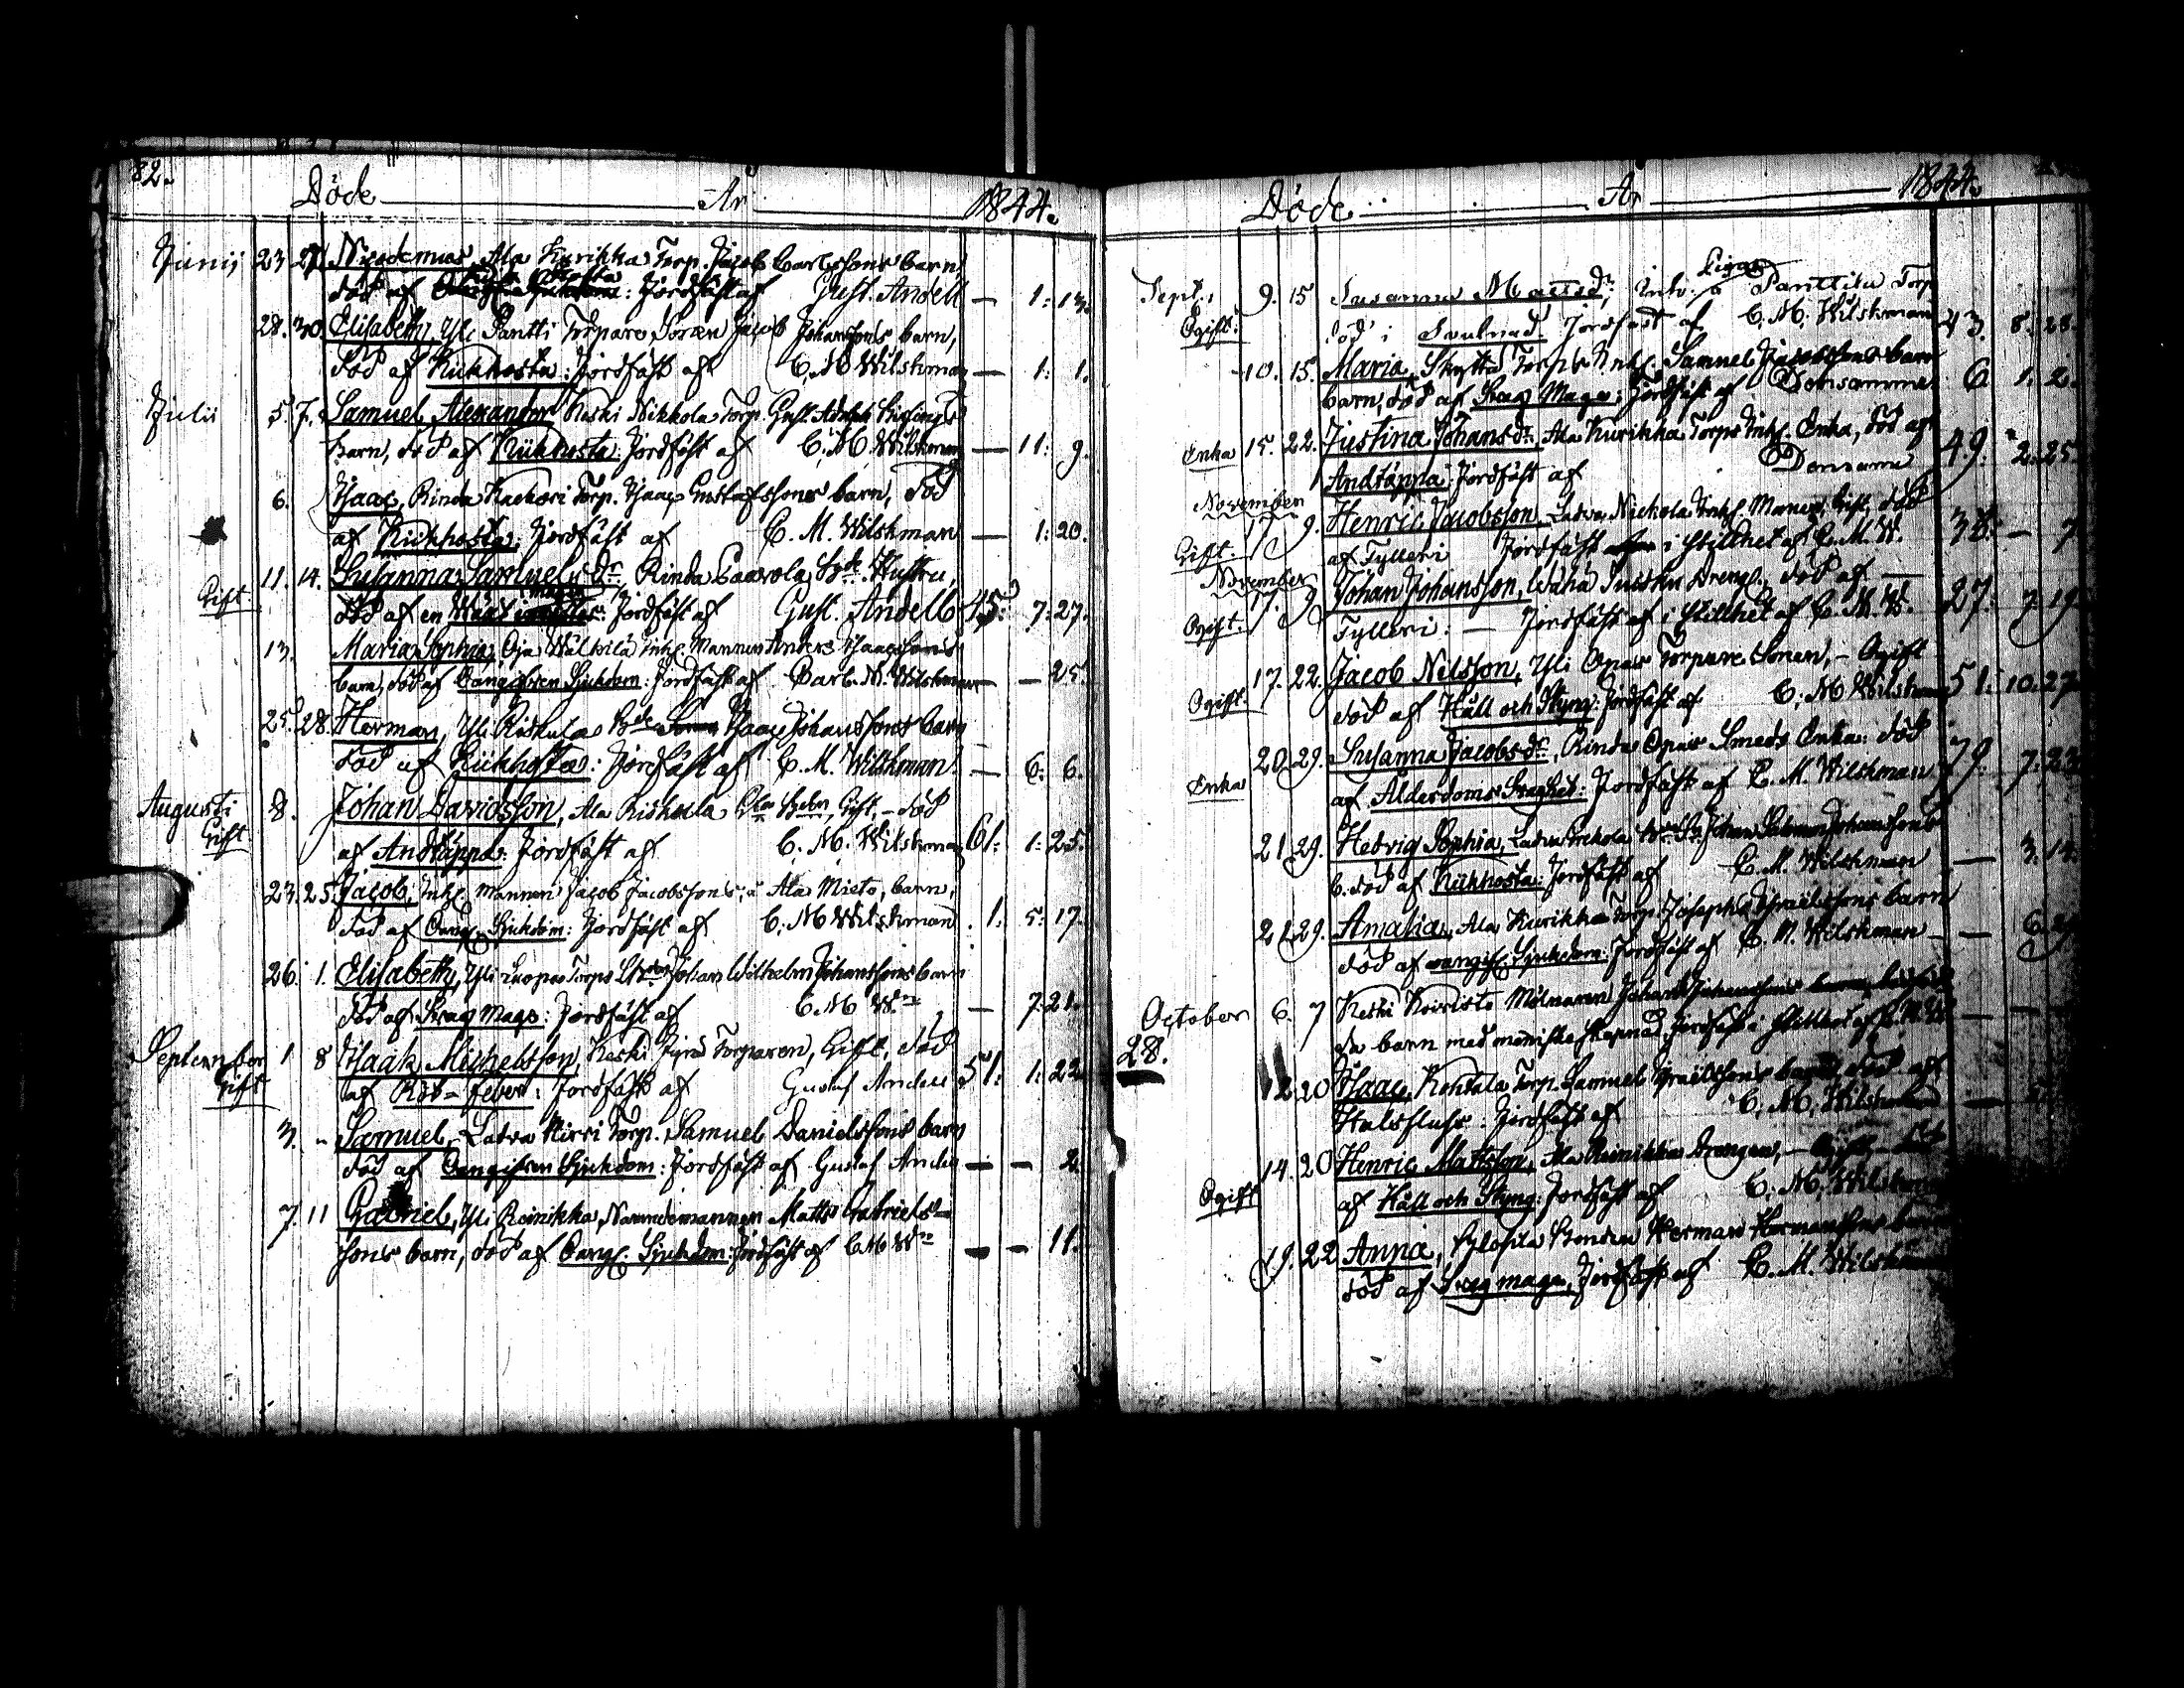 82.
Döde År 1844.
Junij 23 27 Nicodemus, Ala Kurikka Torp. Jacob Carlssons barn,
död af Jordfäst af Gust. Andell — 1: 13.
28. 30 Elisabeth, Yli Pantti Torpare Sonen Jacob Johanssons barn,
död af Kikhosta: Jordfäst af C. M. Wilskman — 1: 1.
Julii 5. 7. Samuel Alexander Keski Nikkola Torp. Gust. Adolph
barn, död af Kikhosta: Jordfäst af C. M. Wilskman — 11: 9.
6. Isaac, Rinda Kackori Torp. Isaac Gustafssons barn, död
af Kikhosta: Jordfäst af C. M. Wilskman — 1: 20.
11. 14. Susanna Samuels dr, Rinda Paavola Bde Hustru,
Gift död af en Jordfäst af Gust. Andell 45: 7: 27.
13. Maria Sophia, Oja Wälkilä Inh. Mannen Anders Isaacssons
barn, död af Oangifven Sjukdom: Jordfäst af Carl M. Wilskman — — 25.
25. 28. Herman, Yli Riskula Bde Isaac Johanssons barn
död af Kikhosta: Jordfäst af C. M. Wilskman. — 6: 6.
Augusti 8. Johan Davidsson, Ala Riskula Gift, – död
Gift af Andtäppa: Jordfäst af C. M. Wilskman 61: 1: 25.
23. 25. Jacob, Inh. mannen Jacob Jacobssons, å Ala Mieto, barn,
död af Oang. Sjukdom: Jordfäst af C. M. Wilskman 1: 5: 17.
26. 1. Elisabeth, Yli Luopa Torps Johan Wilhelm Johanssons barn
död af Svag Mage: Jordfäst af C. M. W:n — 7: 21.
September 1 8 Isaak Michelsson, Keski Torparen, Gift, död
Gift af Röt-feber: Jordfäst af Gustaf Andell 51: 1: 22
3. – Samuel, Latva Kirri Torp. Samuel Danielssons barn
död af Oangifven Sjukdom: Jordfäst af Gustaf — — 2.
7. 11 Gabriel, Yli Reinikka, Nämndemannen Matts Gabriels-
sons barn, död af Oang. Sjukdom: Jordfäst af C M W:n — — 11.
Döde År 1844.
Sept. 9. 15 Susanna Mattsdr, Inh. Pigan å Panttila Torp
Ogift. död i Jordfäst af C. M. Wilskman 43. 8. 28.
10. 15. Maria, Skyttä Torps Inh. Samuel Jacobssons barn
barn, död af Svag Mage: Jordfäst af Densamme 6 1. 2.
Enka 15. 22. Justina Johansdr Ala Kurikka Torps Inh. Enka, död af
Andtäppa: Jordfäst af Densame 49. 2. 25.
November
17 9. Henric Jacobsson, Latva Nickola Inh. Mannen, Gift, död
Gift. af Fylleri Jordfäst i stillhet af C. M. W. 38. – 7
November
17. 9 Johan Johansson, Wähä Dreng, död af
Ogift. Fylleri: — Jordfäst af i stillhet af C. M. W. 27. 7. 19.
17. 22. Jacob Nilsson, Yli Opas Torpare Sonen, – Ogift
Ogift. död af Håll och Styng: Jordfäst af C. M Wilskman 51: 10: 27
20. 29. Susanna Jacobsdr, Rinda Opas Smeds Enka: död
Enka af Alderdoms Svaghet: Jordfäst af C. M. Wilskman 79. 7: 23
21. 29. Hedvig Sophia, Johan Salomon Johanssons
b. död af Kikhosta: Jordfäst af C. M. Wilskman — 3: 14.
21. 29. Amalia, Ala Kurikka Torp. Josephs Israelssons barn
död af oangif. Sjukdom: Jordfäst af C. M. Wilskman — — 6
October 6. 7 Keski Koivisto Mölnaren Johan Johanssons barn,
28. barn med Jordfäst i stillhet af C. M. W — —
12 20 Isaac, Kohtala Torp. Samuel Israelssons barn, död af
Halsfluss: Jordfäst af C. M. Wilskman —
14. 20 Henric Mattsson, Ala Reinikka Drengen, – Ogift, –
Ogift af Håll och Styng: Jordfäst af C. M. Wilskman
19. 22 Anna, Bonden Herman Hermanssons barn
död af Svag mage, Jordfäst af C. M. Wilskman